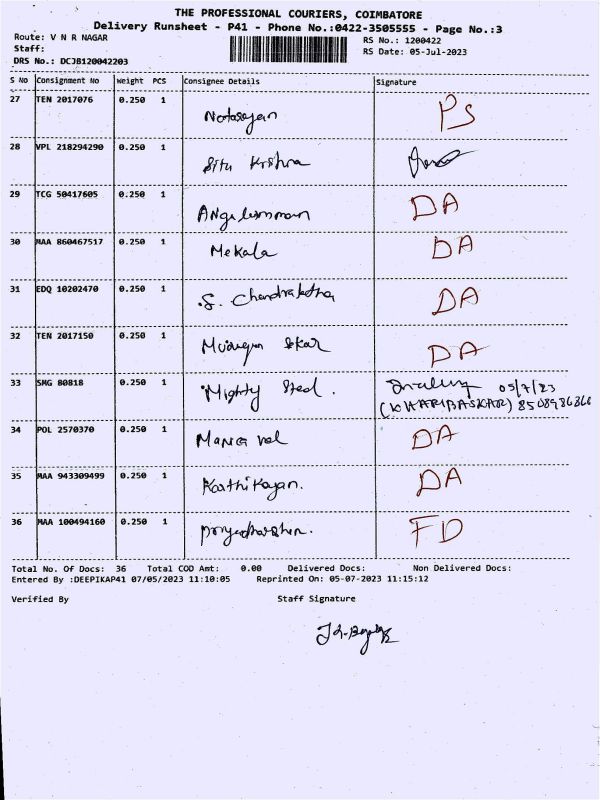 THE PROFESSIONAL COURIERS, COIMBATORE
Delivery Runsheet - P41 - Phone No.:0422-3505555 - Page No.:3
Route: V N R NAGAR
RS No.: 1200422
Staff:
RS Date: 05-Jul-2023
DRS No.: DCJB120042203
S No Consignment No Weight PCS Consignee Details Signature
27 TEN 2017076 0.250 1 PS
28 VPL 218294290 0.250 1 Krishna
29 TCG 50417605 0.250 1 DA
30 MAA 860467517 0.250 1 Mekala DA
31 EDQ 10202470 0.250 1 S. DA
32 TEN 2017150 0.250 1 Murugan Sekar DA
33 SMG 80818 0.250 1 Mighty Steel. 05/7/23
(K HARIBASKAR)
34 POL 2570370 0.250 1 DA
35 MAA 943309499 0.250 1 Karthikeyan. DA
36 MAA 100494160 0.250 1 FD
Total No. Of Docs: 36 Total COD Amt: 0.00 Delivered Docs: Non Delivered Docs:
Entered By :DEEPIKAP41 07/05/2023 11:10:05 Reprinted On: 05-07-2023 11:15:12
Verified By Staff Signature